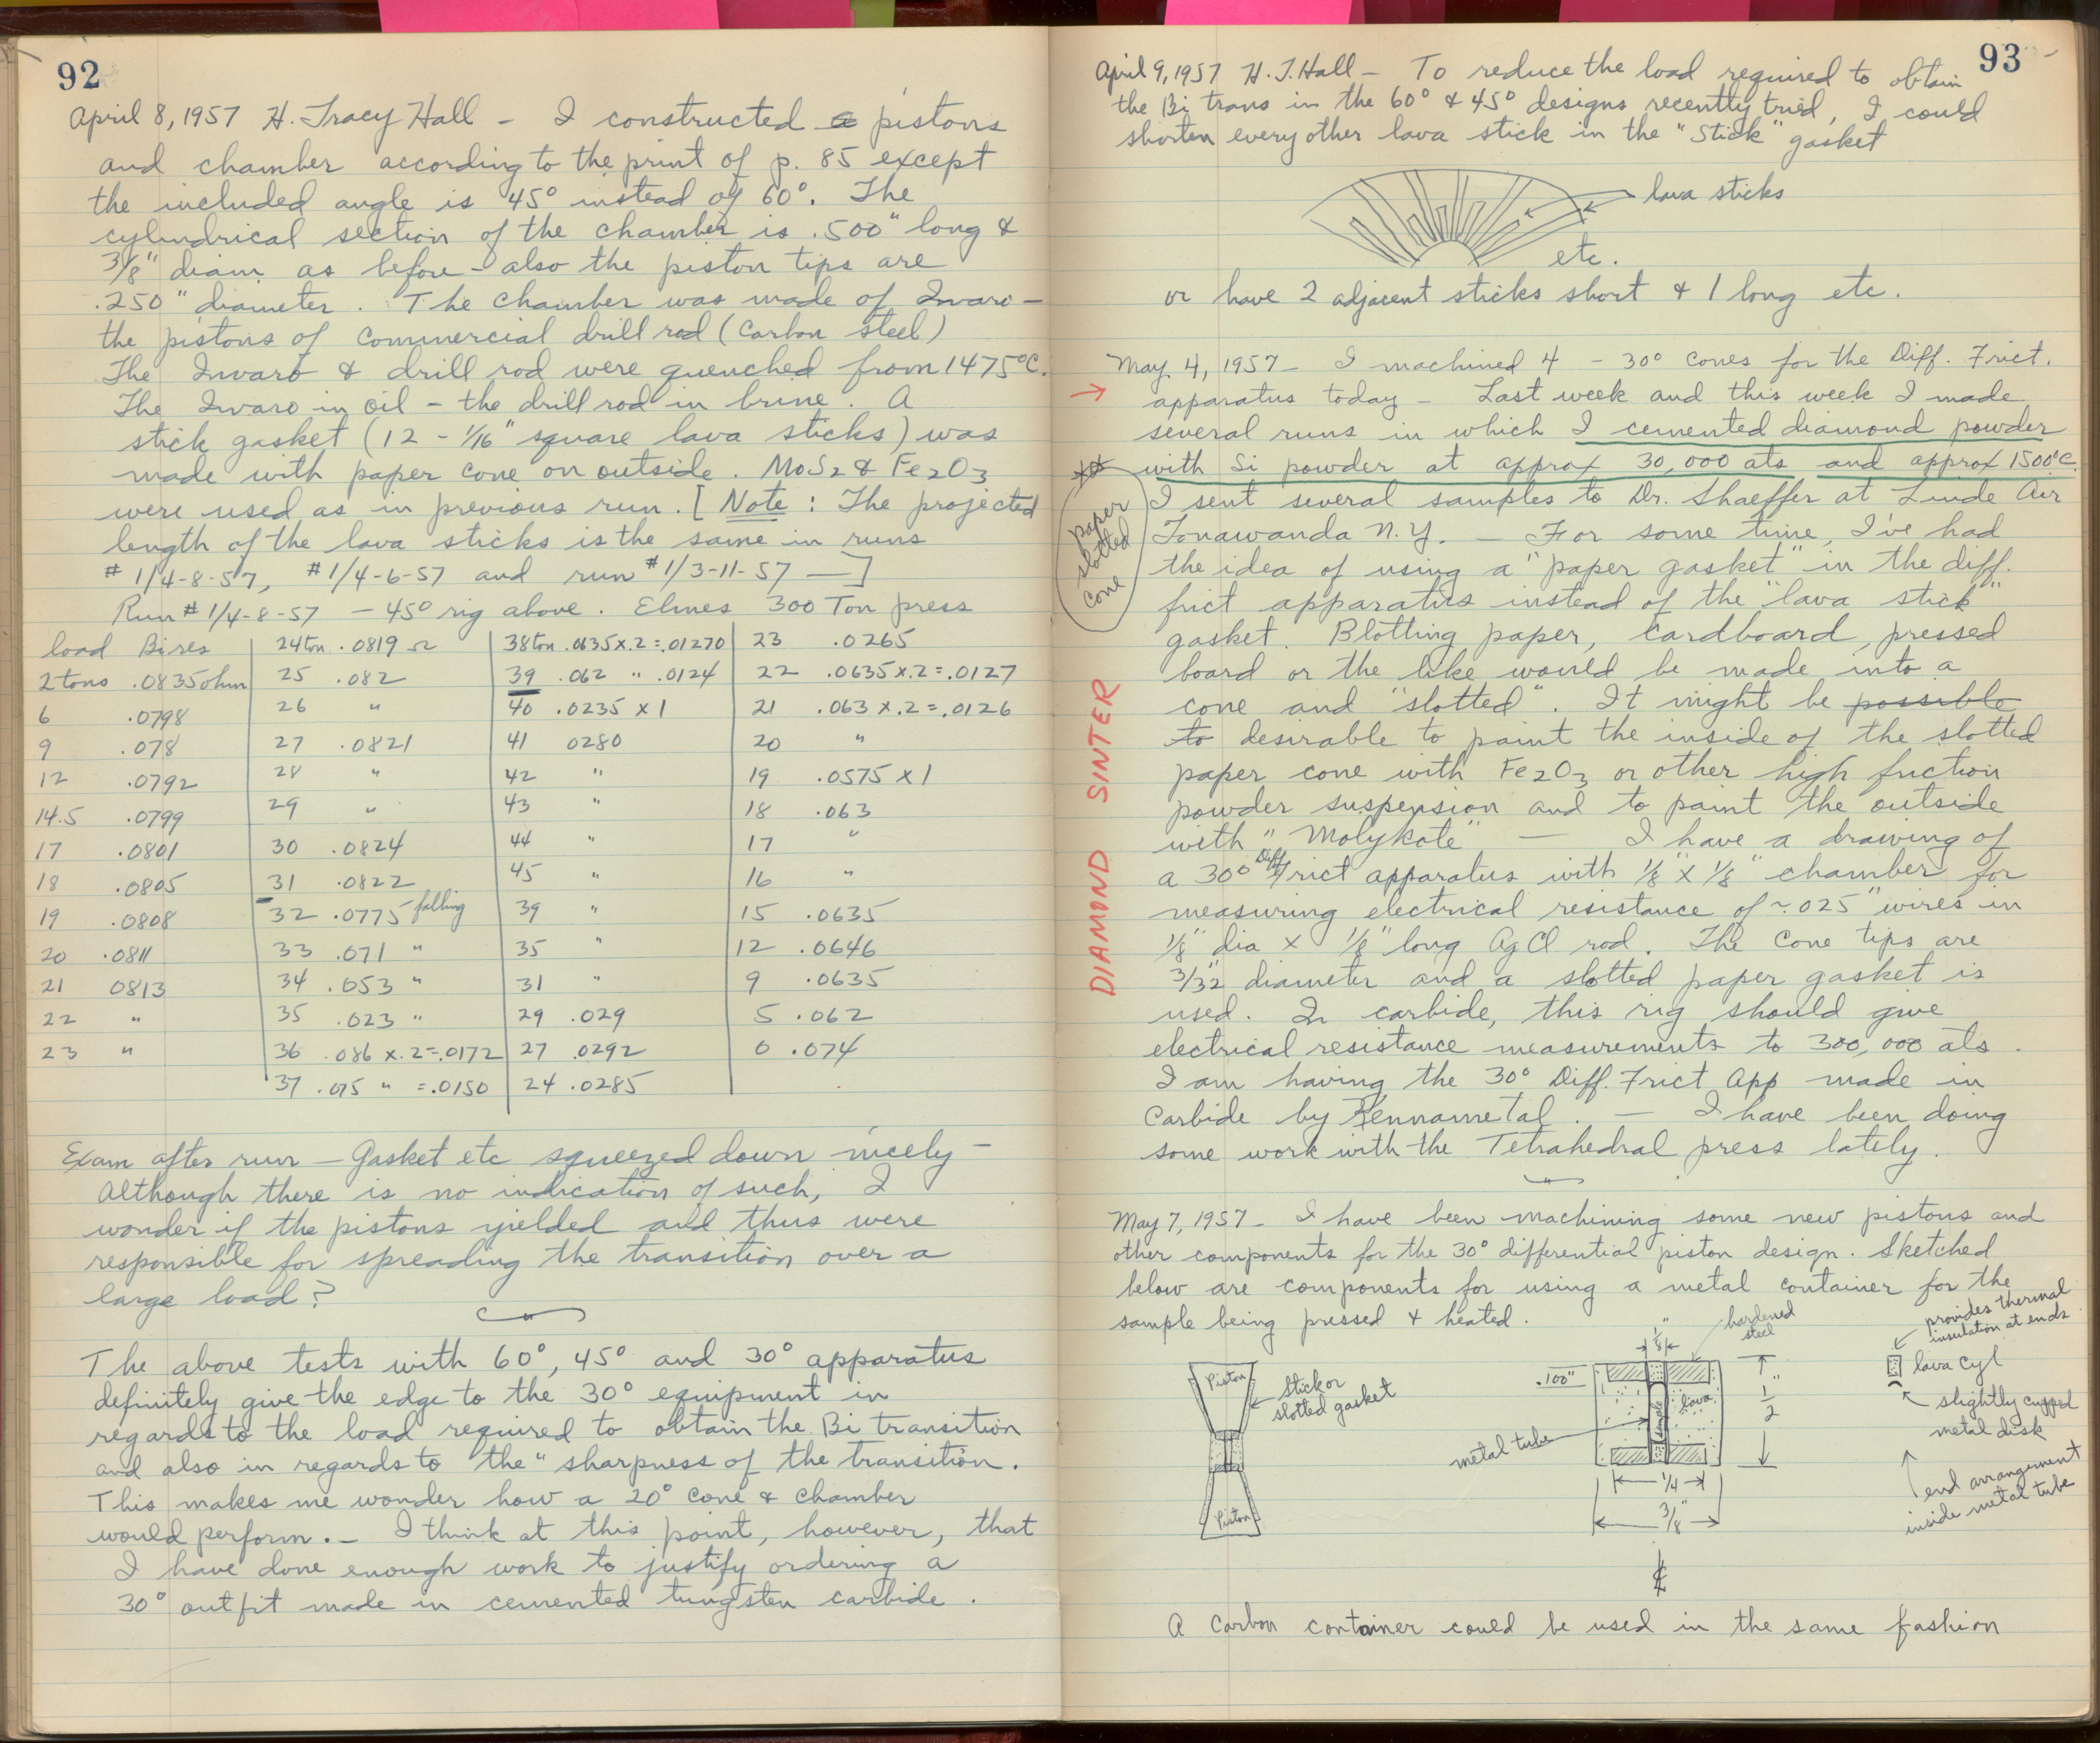 92
April 8, 1957 H. Tracy Hall - I constructed a pistons
and chamber according to the print of p. 85 except
the included angle is 45° instead of 60°. The
cylindrical section of the chamber is .500" long &
3/8" diam as before - also the piston tips are
.250" diameter. The chamber was made of Invaro -
the pistons of commercial drill rod (Carbon steel)
The Invaro & drill rod were quenched from 1475°C.
The Invaro in oil - the drill rod in brine. A
stick gasket (12 - 1/16" square lava sticks) was
made with paper cone on outside. MoS2 & Fe2O3
were used as in previous run. [Note: The projected
length of the lava sticks is the same in runs
#1/4-8-57, #1/4-6-57 and run #1/3-11-57 —]
Run #1/4-8-57 - 45° rig above. Elmes 300 Ton press
load Bi res 24ton .0819 Ω 38ton .0635x.2=.01270 23 .0265
2 tons .0835ohm 25 .082 39 .062 " .0124 22 .0635x.2=.0127
6 .0798 26 " 40 .0235 x1 21 .063 x.2=.0126
9 .078 27 .0821 41 0280 20 "
12 .0792 28 " 42 " 19 .0575 x1
14.5 .0799 29 " 43 " 18 .063
17 .0801 30 .0824 44 " 17 "
18 .0805 31 .0822 45 " 16 "
19 .0808 32 .0775 falling 39 " 15 .0635
20 .0811 33 .071 " 35 " 12 .0646
21 0813 34 .053 " 31 " 9 .0635
22 " 35 .023 " 29 .029 5 .062
23 " 36 .086 x.2=.0172 27 .0292 0 .074
37 .075 " =.0150 24 .0285
Exam after run - Gasket etc squeezed down nicely -
Although there is no indication of such, I
wonder if the pistons yielded and thus were
responsible for spreading the transition over a
large load?
The above tests with 60°, 45° and 30° apparatus
definitely give the edge to the 30° equipment in
regards to the load required to obtain the Bi transition
and also in regards to the "sharpness of the transition.
This makes me wonder how a 20° cone & chamber
would perform. - I think at this point, however, that
I have done enough work to justify ordering a
30° outfit made in cemented tungsten carbide.
93
April 9, 1957 H. T. Hall - To reduce the load required to obtain
the Bi trans in the 60° & 45° designs recently tried, I could
shorten every other lava stick in the "Stick" gasket
lava sticks
etc.
or have 2 adjacent sticks short & 1 long etc.
May 4, 1957 - I machined 4 - 30° cones for the Diff. Frict.
apparatus today - Last week and this week I made
several runs in which I cemented diamond powder
with Si powder at approx 30,000 ats and approx 1500°C.
I sent several samples to Dr. Shaeffer at Linde Air
Tonawanda N.Y. — For some time, I've had
the idea of using a "paper gasket" in the diff.
frict apparatus instead of the "lava stick"
gasket. Blotting paper, cardboard, pressed
board or the like would be made into a
cone and "slotted". It might be possible
to desirable to paint the inside of the slotted
paper cone with Fe2O3 or other high friction
powder suspension and to paint the outside
with "Molykote" — I have a drawing of
a 30° Diff Frict apparatus with 1/8" x 1/8" chamber for
measuring electrical resistance of ~.025" wires in
1/8" dia x 1/8" long AgCl rod. The cone tips are
3/32" diameter and a slotted paper gasket is
used. In carbide, this rig should give
electrical resistance measurements to 300,000 ats.
I am having the 30° Diff. Frict App made in
Carbide by Kennametal. — I have been doing
some work with the Tetrahedral press lately.
paper
slotted
cone
DIAMOND SINTER
May 7, 1957 - I have been machining some new pistons and
other components for the 30° differential piston design. Sketched
below are components for using a metal container for the
sample being pressed & heated.
Piston
stick or
slotted gasket
Piston
metal tube
.100"
1/8"
hardened
steel
sample
lava
1/2"
1/4
3/8"
provides thermal
insulation at ends
lava cyl
slightly cupped
metal disk
end arrangement
inside metal tube
℄
A Carbon container could be used in the same fashion